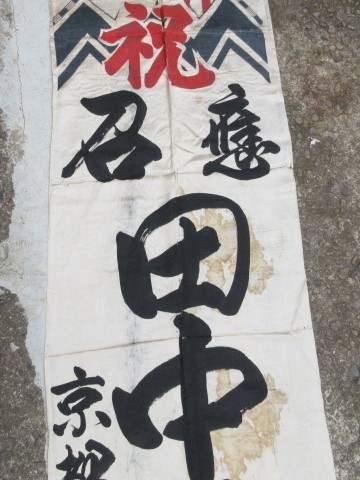 祝
應召
田中
京